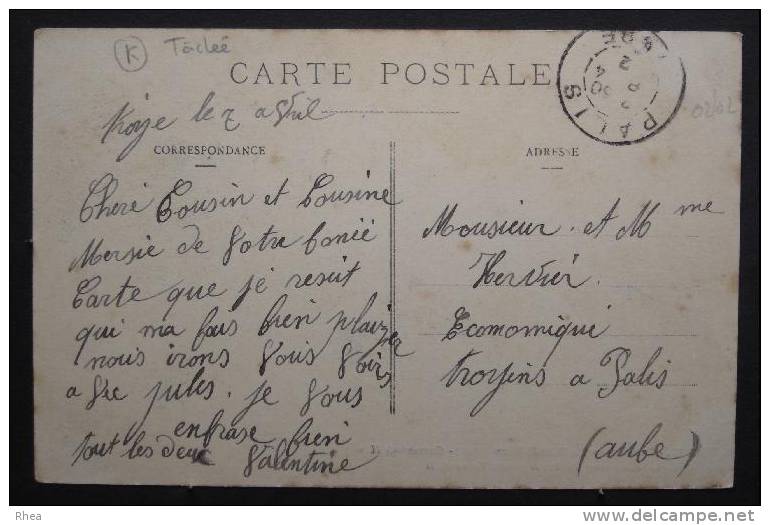 K Tâcleé
CARTE POSTALE
PALIS
le 7 avril
02/02
CORRESPONDANCE
ADRESSE
Cheré Cousin et Cousine
Mersie de votre bonié
Carte que je resuit
qui ma fais bien plaizer
nous irons vous voirs
avre jules. je vous
enfrase bien
tout les deux Valentine
Monsieur et Mme
Hervier.
Economiqui
troyins a Palis
(aube)
Rhea
www.delcampe.net